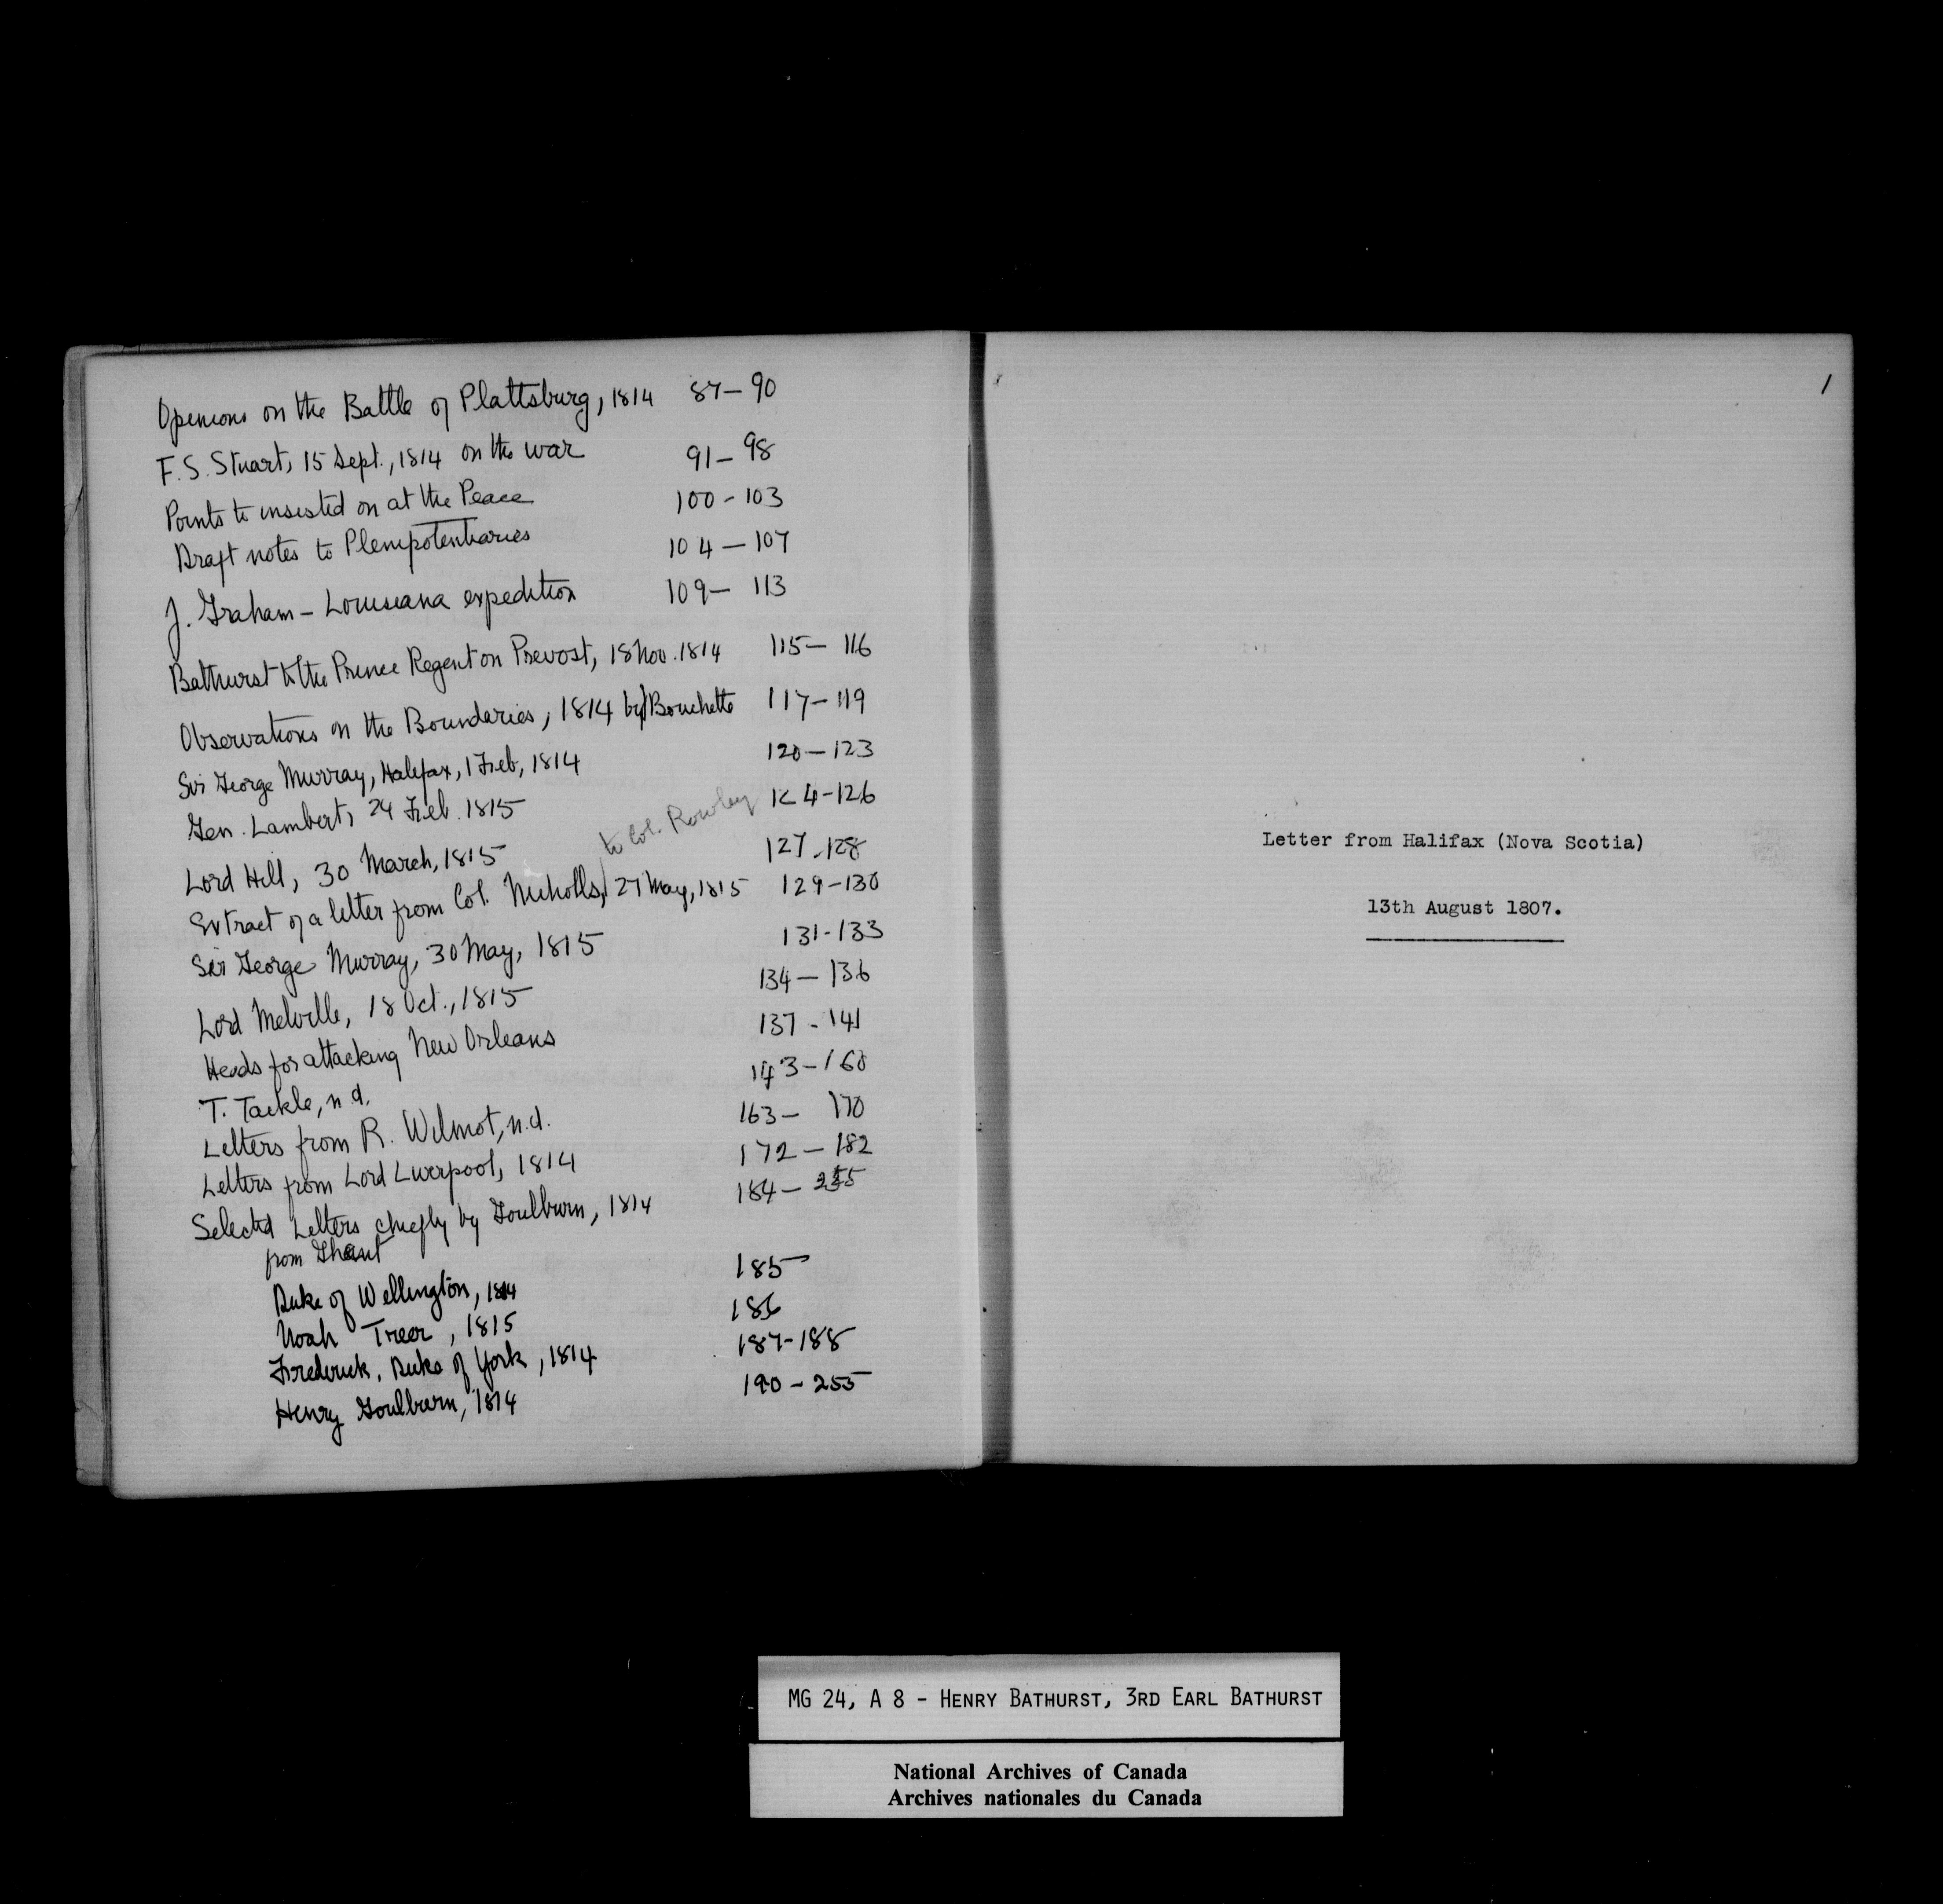 Opinions on the Battle of Plattsburg, 1814 87-90
F.S. Stuart, 15 Sept., 1814 on the war 91-98
Points to insisted on at the Peace 100-103
Draft notes to Plenipotentiaries 104-107
J. Graham - Louisiana expedition 109-113
Bathurst to the Prince Regent on Prevost, 18 Nov. 1814 115-116
Observations on the Boundaries, 1814 by Bouchette 117-119
Sir George Murray, Halifax, 1 Feb, 1814 120-123
Gen. Lambert, 24 Feb. 1815 124-126
Lord Hill, 30 March, 1815 127-128
to Col. Rowley
Extract of a letter from Col. Nicholls, 27 May, 1815 129-130
Sir George Murray, 30 May, 1815 131-133
Lord Melville, 18 Oct., 1815 134-136
Heads for attacking New Orleans 137-141
T. Tackle, n.d. 143-160
Letters from R. Wilmot, n.d. 163-170
Letters from Lord Liverpool, 1814 172-182
Selected Letters chiefly by Goulburn, 1814 184-255
from Ghent
Duke of Wellington, 1814 185
Noah 1815 186
Frederick, Duke of York, 1814 187-188
Henry Goulburn, 1814 190-255
1
Letter from Halifax (Nova Scotia)
13th August 1807.
MG 24, A 8 - HENRY BATHURST, 3RD EARL BATHURST
National Archives of Canada
Archives nationales du Canada